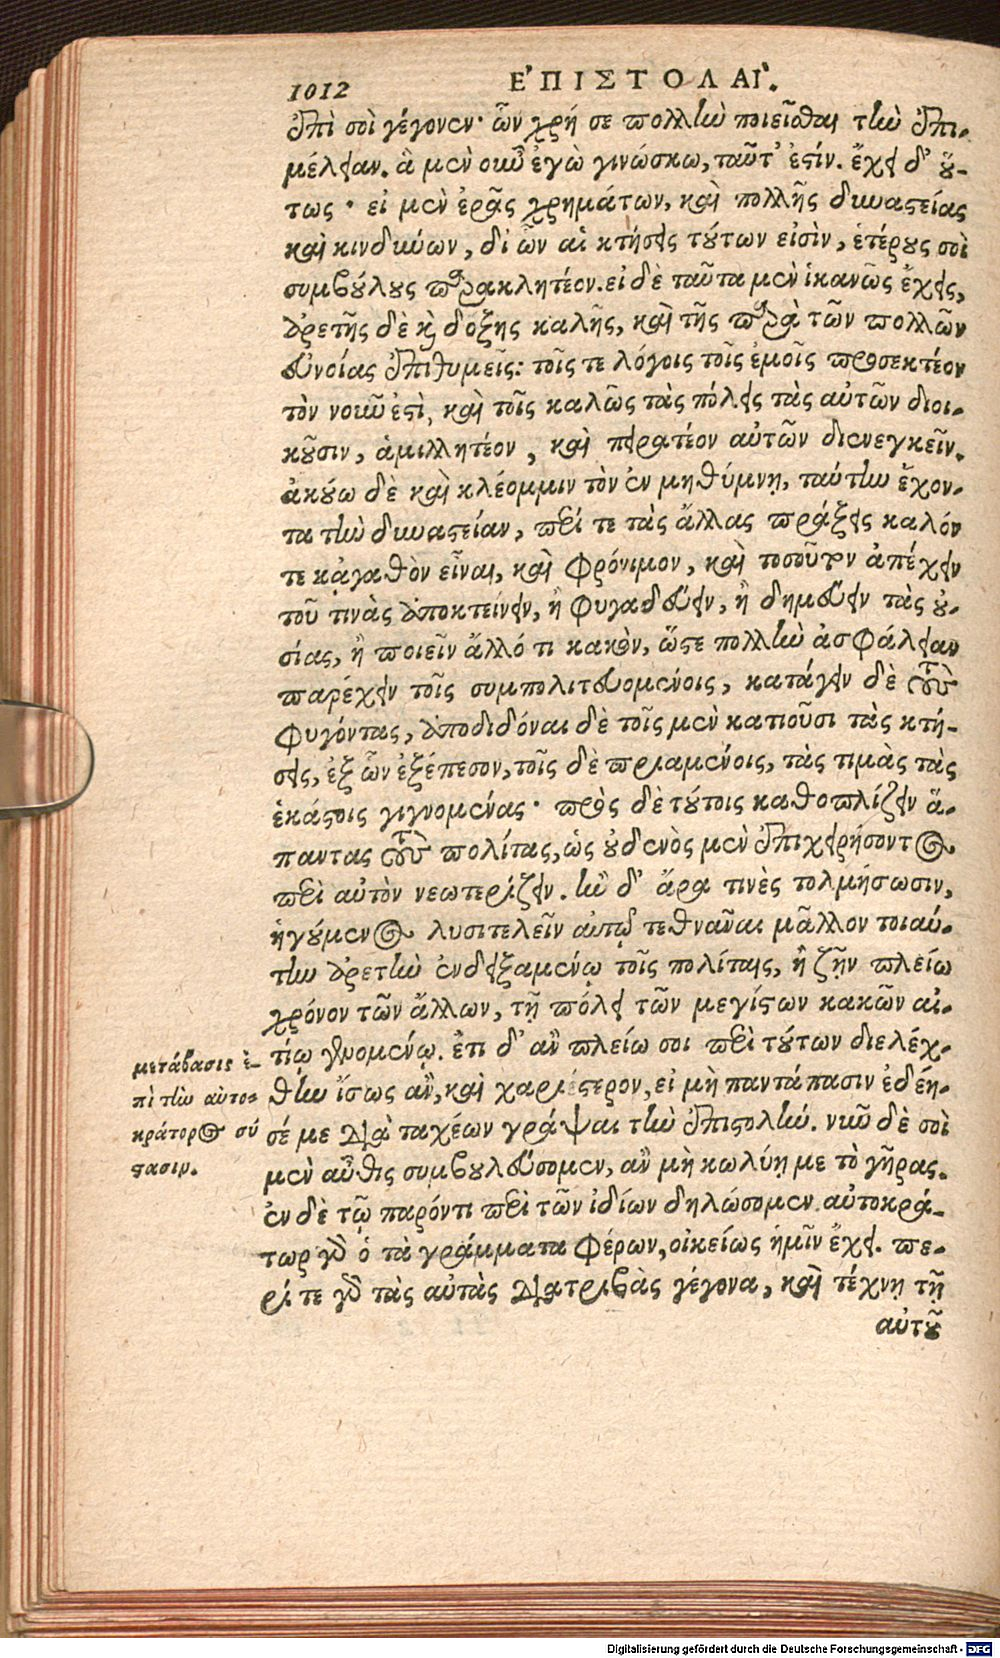 1012 ἘΠΙΣΤΟΛΑΙ.
ἐπὶ σοὶ γέγονεν· ὧν χρή σε πολλὴν ποιεῖσθαι τὴν ἐπι-
μέλειαν. ἃ μὲν οὖν ἐγὼ γινώσκω, ταῦτ' ἐστίν. ἔχει δ' οὕ-
τως · εἰ μὲν ἐρᾷς χρημάτων, καὶ πολλῆς δυναστείας
καὶ κινδύνων, δι' ὧν αἱ κτήσεις τούτων εἰσὶν, ἑτέρους σοὶ
συμβούλους παρακλητέον. εἰ δὲ ταῦτα μὲν ἱκανῶς ἔχεις,
ἀρετῆς δὲ καὶ δοξης καλῆς, καὶ τῆς παρὰ τῶν πολλῶν
εὐνοίας ἐπιθυμεῖς: τοῖς τε λόγοις τοῖς ἐμοῖς προσεκτέον
τὸν νοῦν ἐστὶ, καὶ τοῖς καλῶς τὰς πόλεις τὰς αὐτῶν διοι-
κοῦσιν, ἁμιλλητέον, καὶ πειρατέον αὐτῶν διενεγκεῖν.
ἀκούω δὲ καὶ κλέομμιν τὸν ἐν μηθύμνῃ, ταύτην ἔχον-
τα τὴν δυναστείαν, περί τε τὰς ἄλλας πράξεις καλόν
τε κἀγαθὸν εἶναι, καὶ φρόνιμον, καὶ τοσοῦτον ἀπέχειν
τοῦ τινὰς ἀποκτείνειν, ἢ φυγαδεύειν, ἢ δημεύειν τὰς οὐ-
σίας, ἢ ποιεῖν ἄλλό τι κακὸν, ὥστε πολλὴν ἀσφάλειαν
παρέχειν τοῖς συμπολιτευομένοις, κατάγειν δὲ τοὺς
φυγόντας, ἀποδιδόναι δὲ τοῖς μὲν κατιοῦσι τὰς κτή-
σεις, ἐξ ὧν ἐξέπεσον, τοῖς δὲ πριαμένοις, τὰς τιμὰς τὰς
ἑκάστοις γιγνομένας · πρὸς δὲ τούτοις καθοπλίζειν ἅ-
παντας τοὺς πολίτας, ὡς οὐδενὸς μὲν ἐπιχειρήσοντος
περὶ αὐτὸν νεωτερίζειν. ἢν δ' ἄρα τινὲς τολμήσωσιν,
ἡγούμενος λυσιτελεῖν αὐτῷ τεθνᾶναι μᾶλλον τοιαύ-
την ἀρετὴν ἐνδειξαμένῳ τοῖς πολίταις, ἢ ζῇν πλείω
χρόνον τῶν ἄλλων, τῇ πόλει τῶν μεγίστων κακῶν αἰ-
τίῳ γενομένῳ. ἔτι δ' ἂν πλείω σοι περὶ τούτων διελέχ-
θην ἴσως ἂν, καὶ χαριέστερον, εἰ μὴ παντάπασιν ἐδέη-
σέ με διὰ ταχέων γράψαι τὴν ἐπιστολήν. νῦν δὲ σοὶ
μὲν αὖθις συμβουλεύσομεν, ἂν μὴ κωλύῃ με τὸ γῆρας.
ἐν δὲ τῷ παρόντι περὶ τῶν ἰδίων δηλώσομεν. αὐτοκρά-
τωρ γὰρ ὁ τὰ γράμματα φέρων, οἰκείως ἡμῖν ἔχει. πε-
ρί τε γὰρ τὰς αὐτὰς διατριβὰς γέγονα, καὶ τέχνῃ τῇ
αὐτοῦ
μετάβασις ἐ-
πὶ τὴν αὐτο-
κράτορος σύ
στασιν.
Digitalisierung gefördert durch die Deutsche Forschungsgemeinschaft - DFG